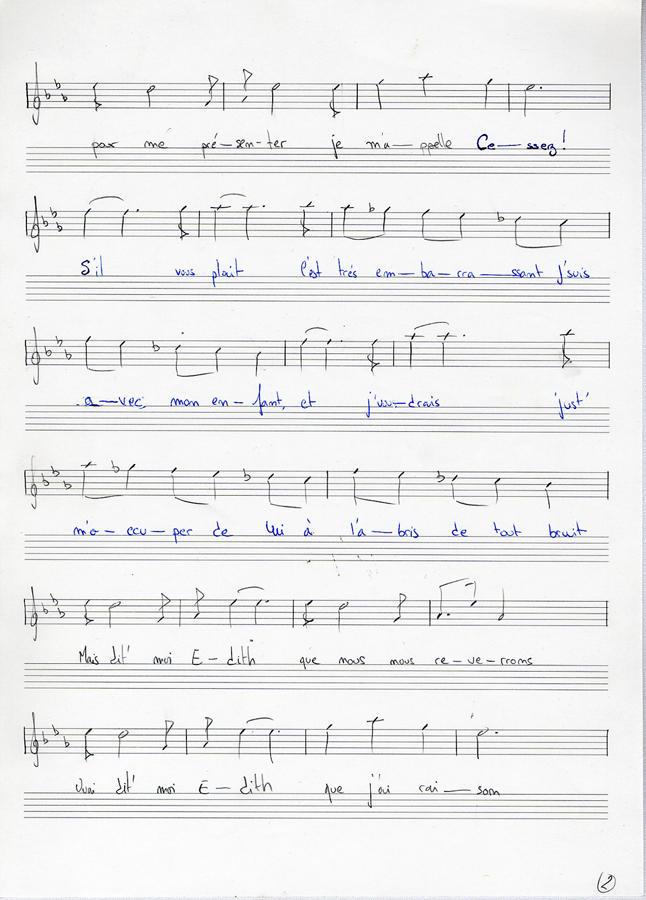 pour me pré-sen-ter je m'a-ppelle Ce-ssez!
S'il vous plait c'est très em-ba-rra-ssant j'suis
a-vec mon en-fant, et j'vou-drais just'
m'o-ccu-per de lui à l'a-bris de tout bruit
Mais dit' moi E-dith que nous nous re-ve-rrons
Oui dit' moi E-dith que j'ai rai-son
2